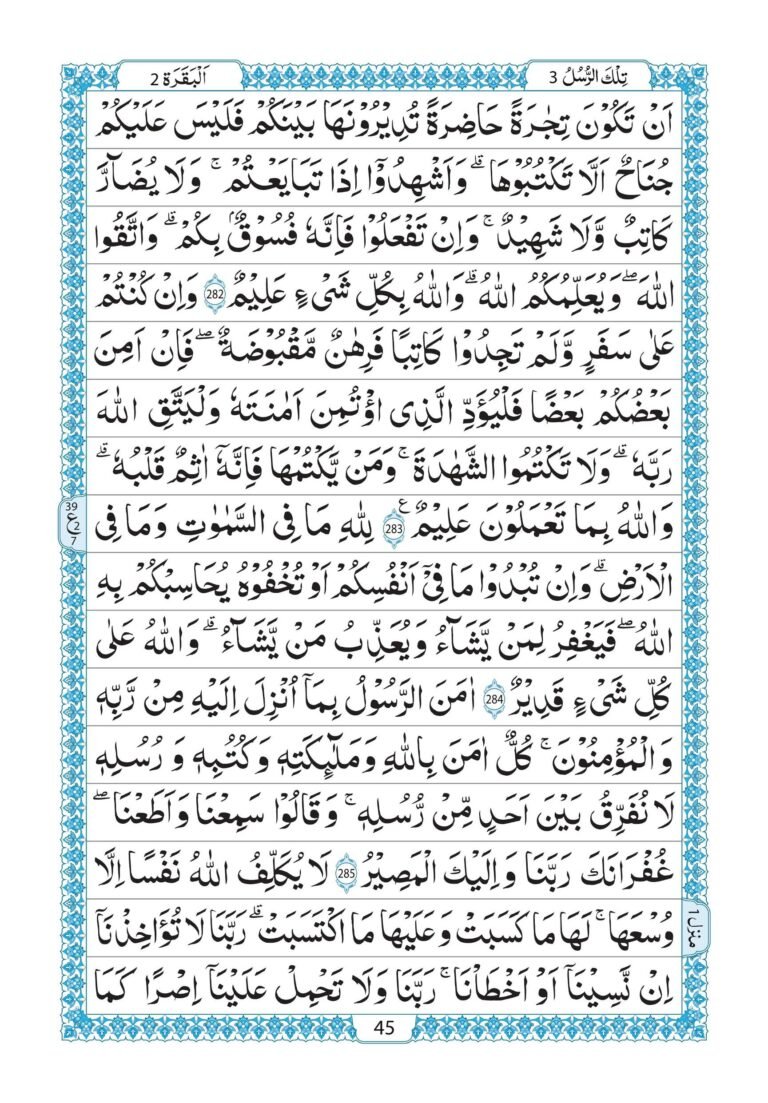 تِلْكَ الرُّسُلُ 3
اَلْبَقَرَة 2
اَنْ تَكُوْنَ تِجٰرَةً حَاضِرَةً تُدِيْرُوْنَهَا بَيْنَكُمْ فَلَيْسَ عَلَيْكُمْ
جُنَاحٌ اَلَّا تَكْتُبُوْهَا ؕ وَاَشْهِدُوْۤا اِذَا تَبَايَعْتُمْ ۚ وَلَا يُضَآرَّ
كَاتِبٌ وَّلَا شَهِيْدٌ ۚ وَاِنْ تَفْعَلُوْا فَاِنَّهٗ فُسُوْقٌۢ بِكُمْ ۗ وَاتَّقُوا
اللّٰهَ ۖ وَيُعَلِّمُكُمُ اللّٰهُ ۗ وَاللّٰهُ بِكُلِّ شَىْءٍ عَلِيْمٌ 282 وَاِنْ كُنْتُمْ
عَلٰى سَفَرٍ وَّلَمْ تَجِدُوْا كَاتِبًا فَرِهٰنٌ مَّقْبُوْضَةٌ ۖ فَاِنْ اَمِنَ
بَعْضُكُمْ بَعْضًا فَلْيُؤَدِّ الَّذِى اؤْتُمِنَ اَمٰنَتَهٗ وَلْيَتَّقِ اللّٰهَ
رَبَّهٗ ۗ وَلَا تَكْتُمُوا الشَّهٰدَةَ ۚ وَمَنْ يَّكْتُمْهَا فَاِنَّهٗۤ اٰثِمٌ قَلْبُهٗ ۗ
وَاللّٰهُ بِمَا تَعْمَلُوْنَ عَلِيْمٌ 283 ع لِلّٰهِ مَا فِى السَّمٰوٰتِ وَمَا فِى
39 ع 2 7
الْاَرْضِ ۗ وَاِنْ تُبْدُوْا مَا فِىْۤ اَنْفُسِكُمْ اَوْ تُخْفُوْهُ يُحَاسِبْكُمْ بِهِ
اللّٰهُ ۖ فَيَغْفِرُ لِمَنْ يَّشَآءُ وَيُعَذِّبُ مَنْ يَّشَآءُ ۗ وَاللّٰهُ عَلٰى
كُلِّ شَىْءٍ قَدِيْرٌ 284 اٰمَنَ الرَّسُوْلُ بِمَاۤ اُنْزِلَ اِلَيْهِ مِنْ رَّبِّهٖ
وَالْمُؤْمِنُوْنَ ۚ كُلٌّ اٰمَنَ بِاللّٰهِ وَمَلٰٓئِكَتِهٖ وَكُتُبِهٖ وَ رُسُلِهٖ
لَا نُفَرِّقُ بَيْنَ اَحَدٍ مِّنْ رُّسُلِهٖ ۚ وَقَالُوْا سَمِعْنَا وَاَطَعْنَا ۖ
غُفْرَانَكَ رَبَّنَا وَاِلَيْكَ الْمَصِيْرُ 285 لَا يُكَلِّفُ اللّٰهُ نَفْسًا اِلَّا
وُسْعَهَا ۚ لَهَا مَا كَسَبَتْ وَعَلَيْهَا مَا اكْتَسَبَتْ ۗ رَبَّنَا لَا تُؤَاخِذْنَاۤ
منزل ١
اِنْ نَّسِيْنَاۤ اَوْ اَخْطَاْنَا ۚ رَبَّنَا وَلَا تَحْمِلْ عَلَيْنَاۤ اِصْرًا كَمَا
45